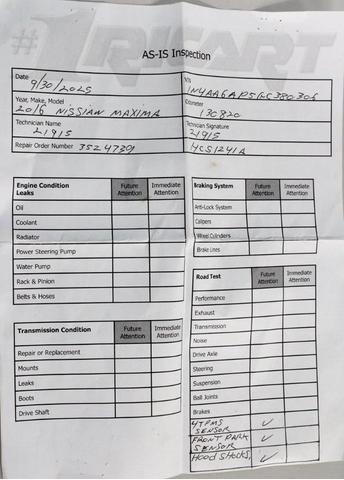 #1 RICART
AS-IS Inspection
Date 9/30/2025
VIN
Year, Make, Model
2016 NISSIAN MAXIMA
Odometer
130820
Technician Name
21915
Technician Signature
21915
Repair Order Number 3524739
Engine Condition Future Attention Immediate Attention
Leaks
Oil
Coolant
Radiator
Power Steering Pump
Water Pump
Rack & Pinion
Belts & Hoses
Transmission Condition Future Attention Immediate Attention
Repair or Replacement
Mounts
Leaks
Boots
Drive Shaft
Braking System Future Attention Immediate Attention
Anti-Lock System
Calipers
Wheel Cylinders
Brake Lines
Road Test Future Attention Immediate Attention
Performance
Exhaust
Transmission
Noise
Drive Axle
Steering
Suspension
Ball Joints
Brakes
4 TPMS ✓
SENSOR
FRONT PARK ✓
SENSOR
Hood shocks, ✓